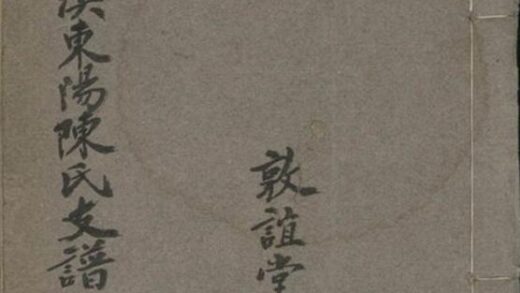 東陽陳氏支譜
敦誼堂